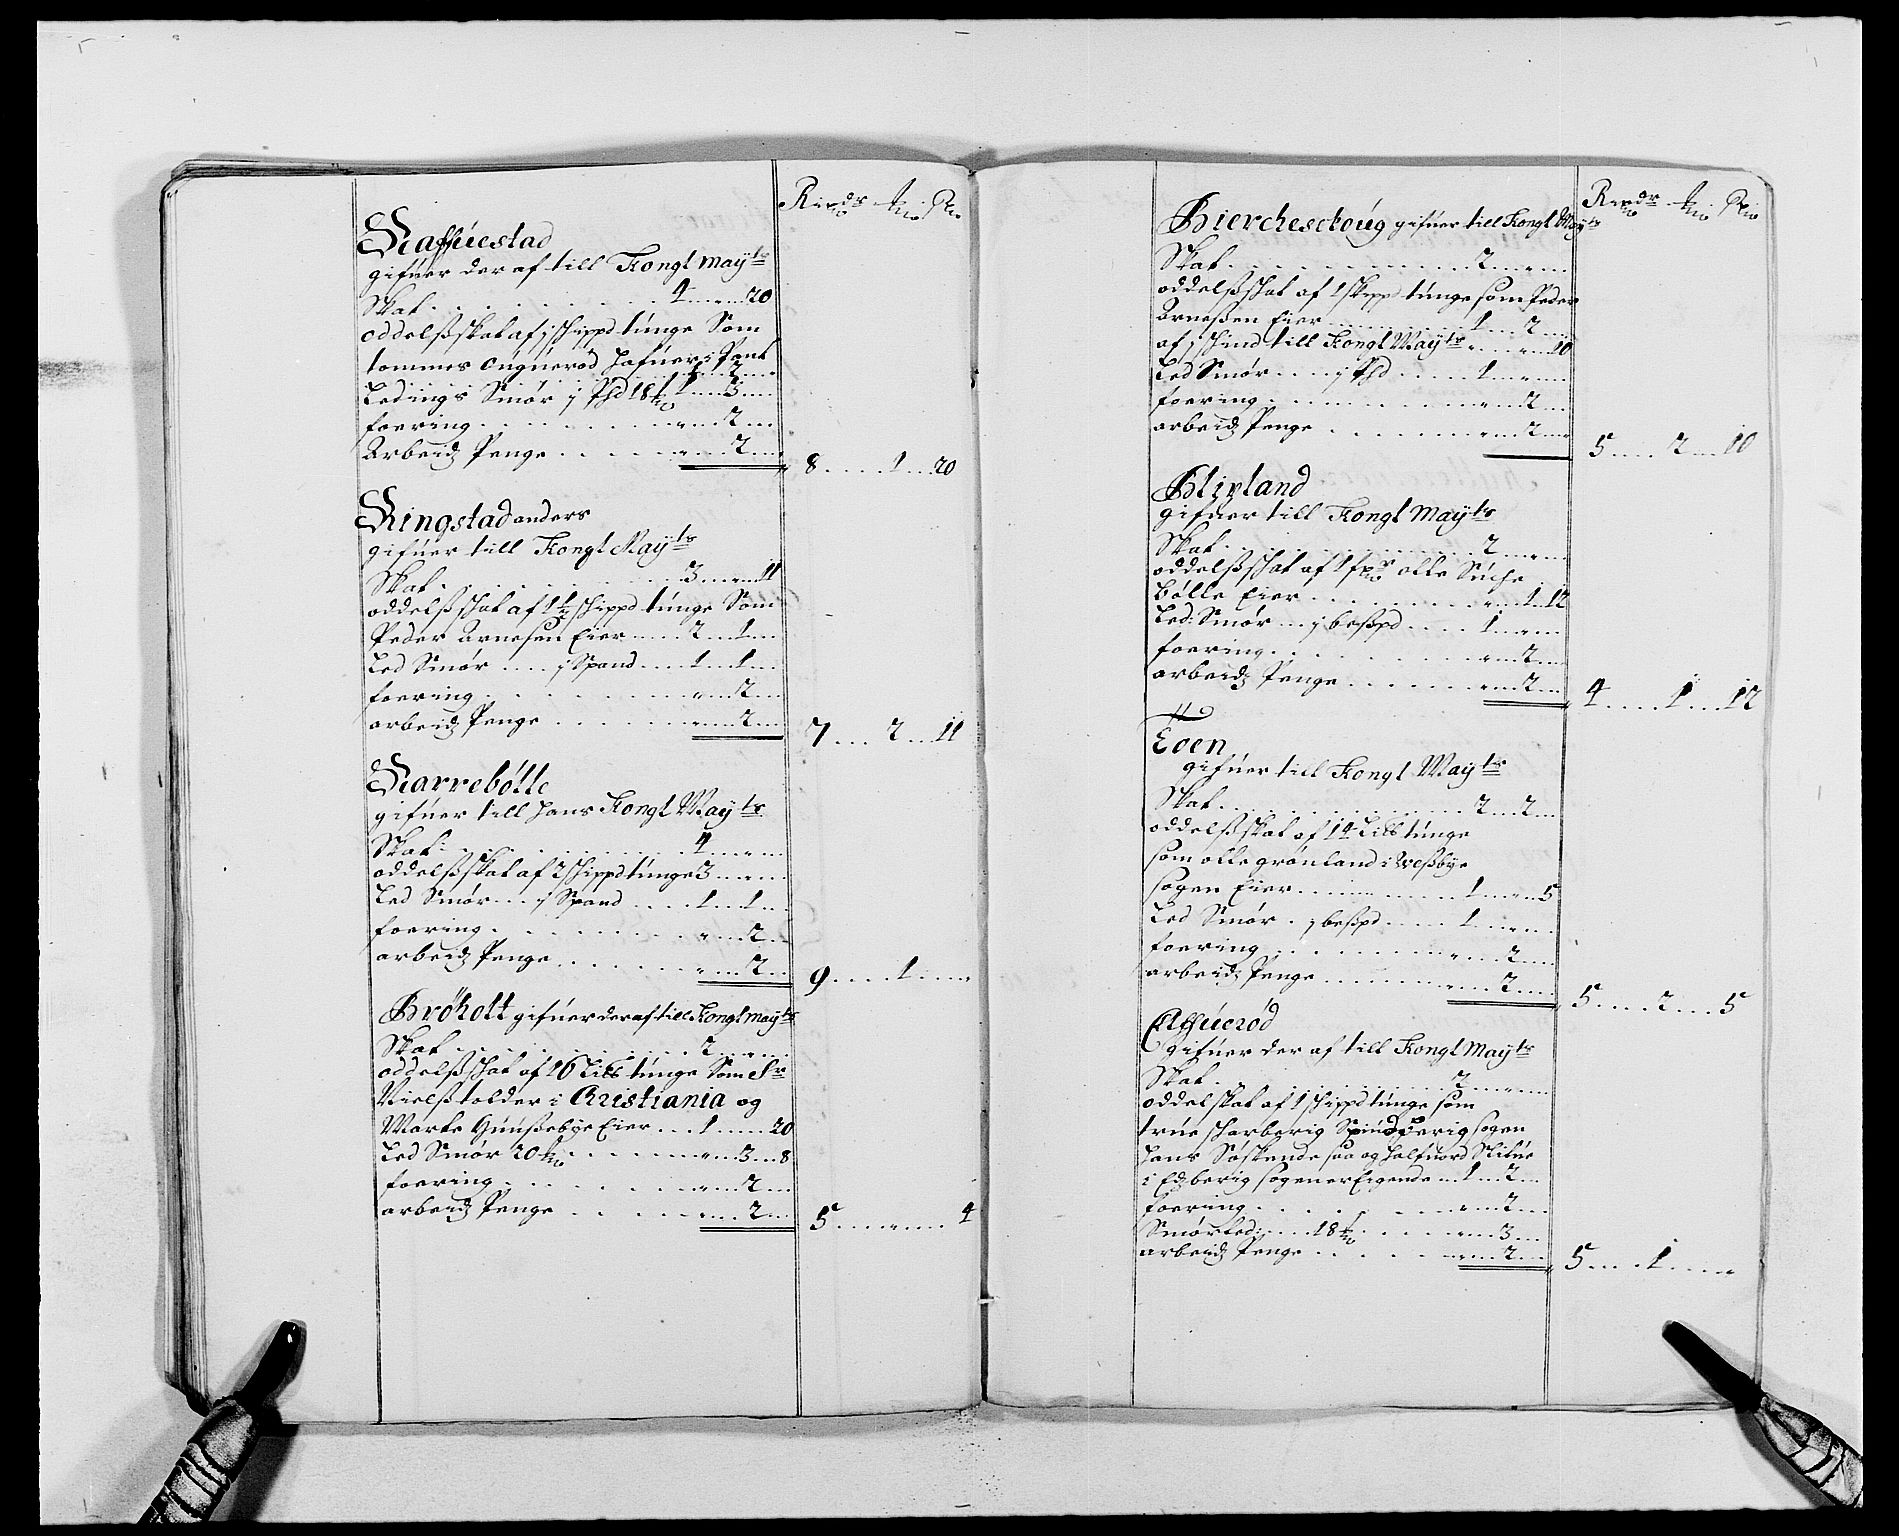 Rixdr mk sk
Raffuestad
gifuer der af till Kongl Mayts
Skat . . . 4 . . „ . . 20
oddelsskat af j schippd tunge Som
tommes Hafuer i Pant
. . . 1 . . 2 . . .
Ledings Smör j Pd 18 mk 1 . . 3 . .
foering . . . „ . . 2 . .
Arbeidz Penge . . . „ . . 2 . . 8 . . . 1 . . 20
Ringstad anders
gifuer till Kongl Mayts
Skat . . . 3 . . „ . . 11
oddelsschat af 1½ schippd tunge Som
Peder Arnesen Eier . . . 2 . . 1 . .
Led Smör . . . j Spand . . . 1 . . 1 . .
foering . . . „ . . 2 . .
arbeidz Penge . . . „ . . 2 . . 7 . . . 2 . . 11
Karrebölle
gifuer till Hans Kongl Mayts
Skat . . . 4 . . „ . .
oddelsskat af 2 schippd tunge 3 . . „ . .
Led Smör . . . j Spand . . . 1 . . 1 . .
foering . . . „ . . 2 . .
arbeidz Penge . . . „ . . 2 . . 9 . . . 1 . . „
Bröholt gifuer der af till Kongl Mayts
Skat . . . 2 . . „ . .
oddelsschat af 16 Lisb tunge Som Sr
Nielss tolder i Christiania og
Marte Gunssebye Eier . . . 1 . . . 20
Led Smör 20 mk . . . „ . . 3 . . 8
foering . . . „ . . 2 . .
arbeidz Penge . . . „ . . 2 . . 5 . . . „ . . 4
Rixdr mk sk
Biercheschoug gifuer till Kongl Mayts
Skat . . . 2 . . „ . .
oddelsschat af 1 skippd tunge som Peder
Arnessen Eier . . . 1 . . 2 . .
af j schind till Kongl Mayts . . „ . . „ . . 10
Led Smör . . . j Pd . . . 1 . . „ . .
foering . . . „ . . 2 . .
arbeidz Penge . . . „ . . 2 . . 5 . . . 2 . . 10
Blixland
gifuer till Kongl Mayts
Skat . . . 2 . . „ . .
oddelsschat af 1 olle
bölle Eier . . . „ . . 1 . . 12
Led: Smör . . . j besspd . . . 1 . . „ . .
foering . . . „ . . 2 . .
arbeidz Penge . . . „ . . 2 . . 4 . . . 1 . . 12
Eoen
gifuer till Kongl Mayts
Skat . . . 2 . . 2 . .
oddelsskat af 14 Lisb tunge
som olle grönland i Wessbye
sogen Eier . . . 1 . . „ . . 5
Led Smör . j besspd . . . 1 . . „ . .
foering . . . „ . . 2 . .
arbeidz Penge . . . „ . . 2 . . 5 . . . 2 . . 5
Affueröd
gifuer der af till Kongl Mayts
Skat . . . 2 . . „ . .
oddelskat af 1 schippd tunge som
true scharberig Spindberig sogen
Hans Söskende saa og Halfuord
i Edzberig sogen er Eigende . . 1 . . 2 . .
foering . . . „ . . 2 . .
Smörled: . . . 18 mk . . . „ . . 3 . .
arbeidz Penge . . . „ . . 2 . . 5 . . . 1 . . „